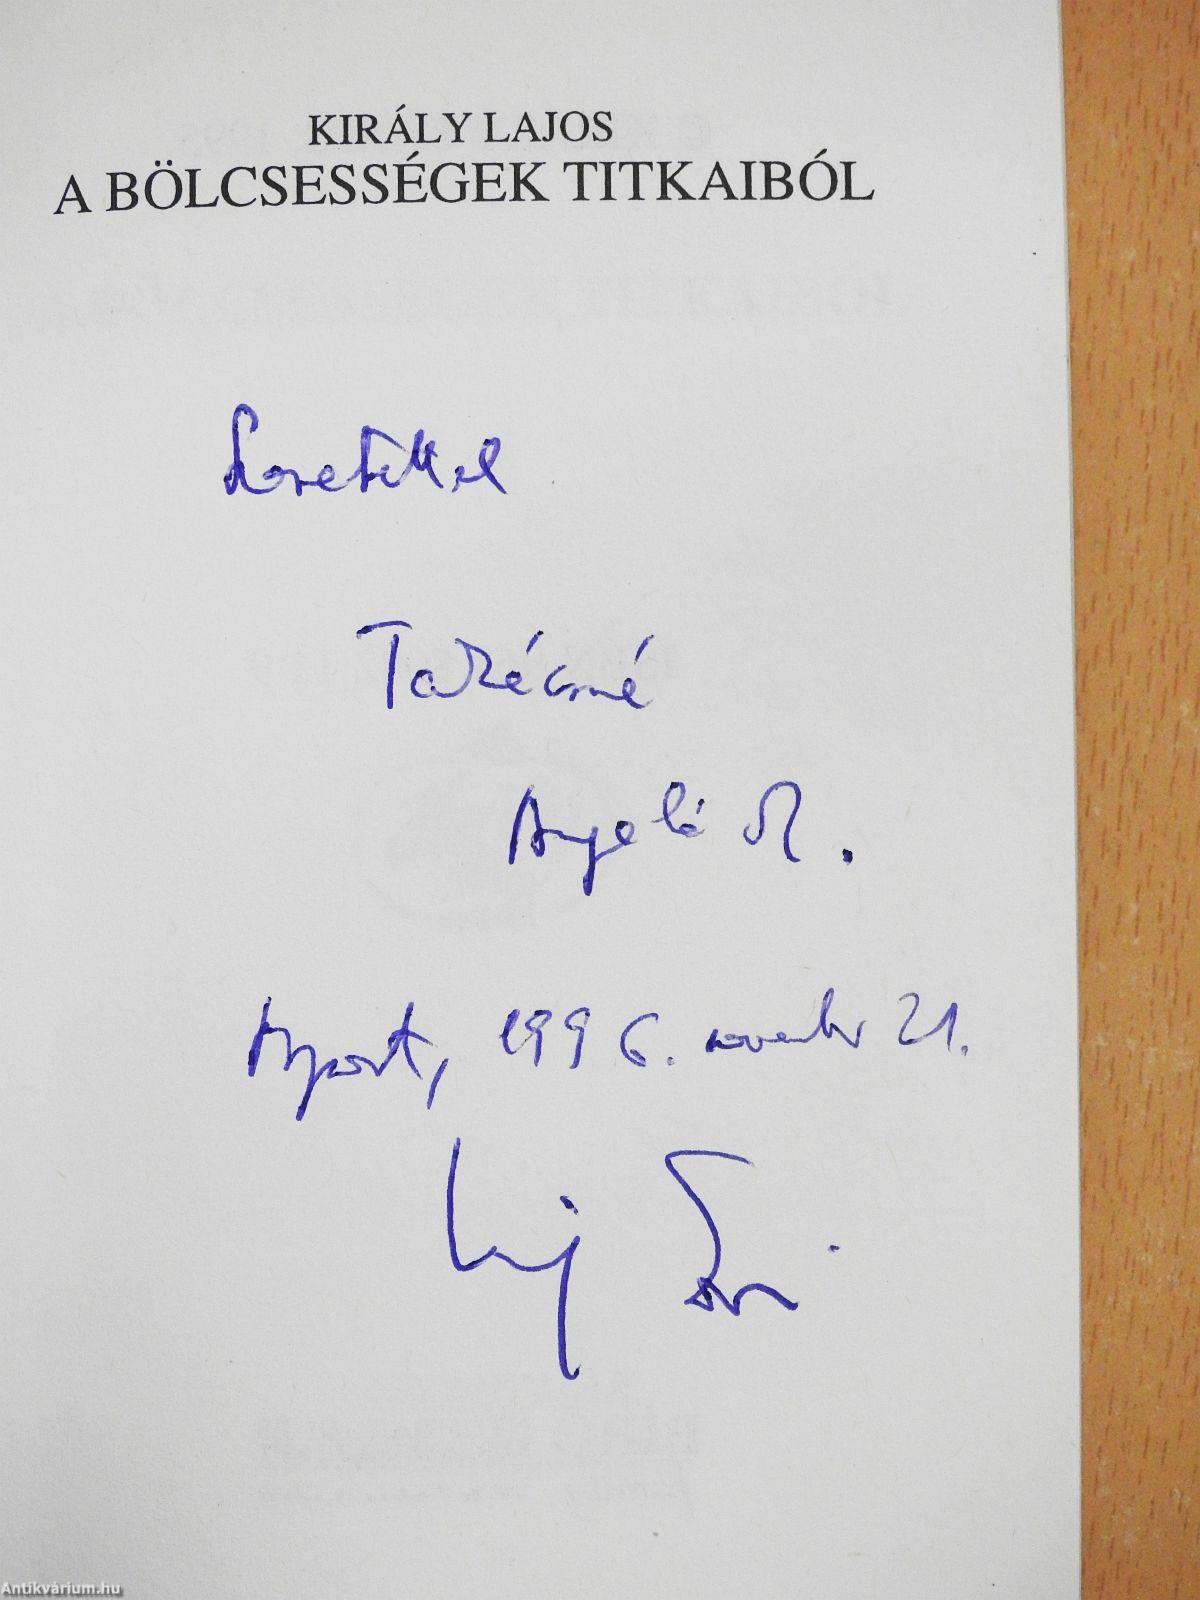 KIRÁLY LAJOS
A BÖLCSESSÉGEK TITKAIBÓL
Szeretettel
Takácsné
Angela
1996. november 21.
Antikvárium.hu